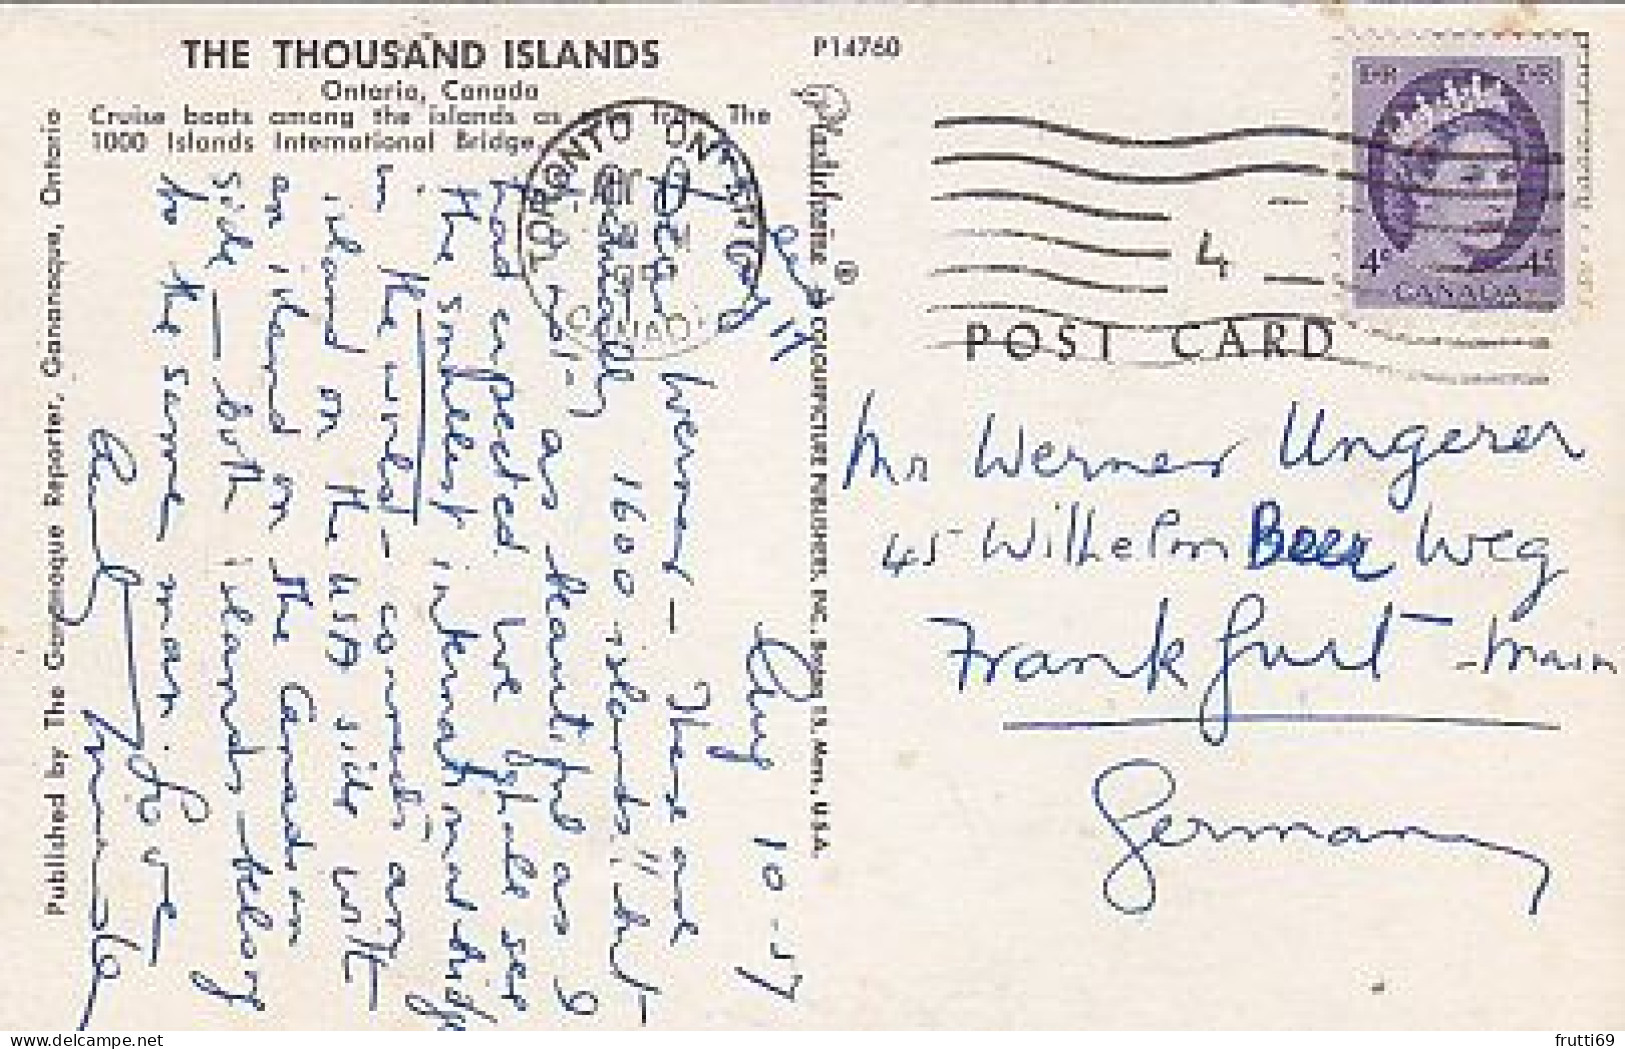 THE THOUSAND ISLANDS
Ontario, Canada
Cruise boats among the islands as from The
1000 Islands International Bridge.
P14760
Published by The Gananoque Reporter, Gananoque, Ontario
Plastichrome ® COLOURPICTURE PUBLISHERS, INC., Boston 15, Mass., U.S.A.
TORONTO ONTARIO
CANADA
4
E·R E·R
4¢ 4¢
CANADA
POST CARD
Mr Werner Ungerer
45 Wilhelm Beer Weg
Frankfurt - Main
Germany
Aug 10-17
Dear Werner - There are
actually 1600 islands!! but
not as beautiful as I
had expected. We shall see
the smallest international bridge
in the world - connects an
island on the USA side with
an island on the Canadian
side - both islands belong
to the same man.
Love